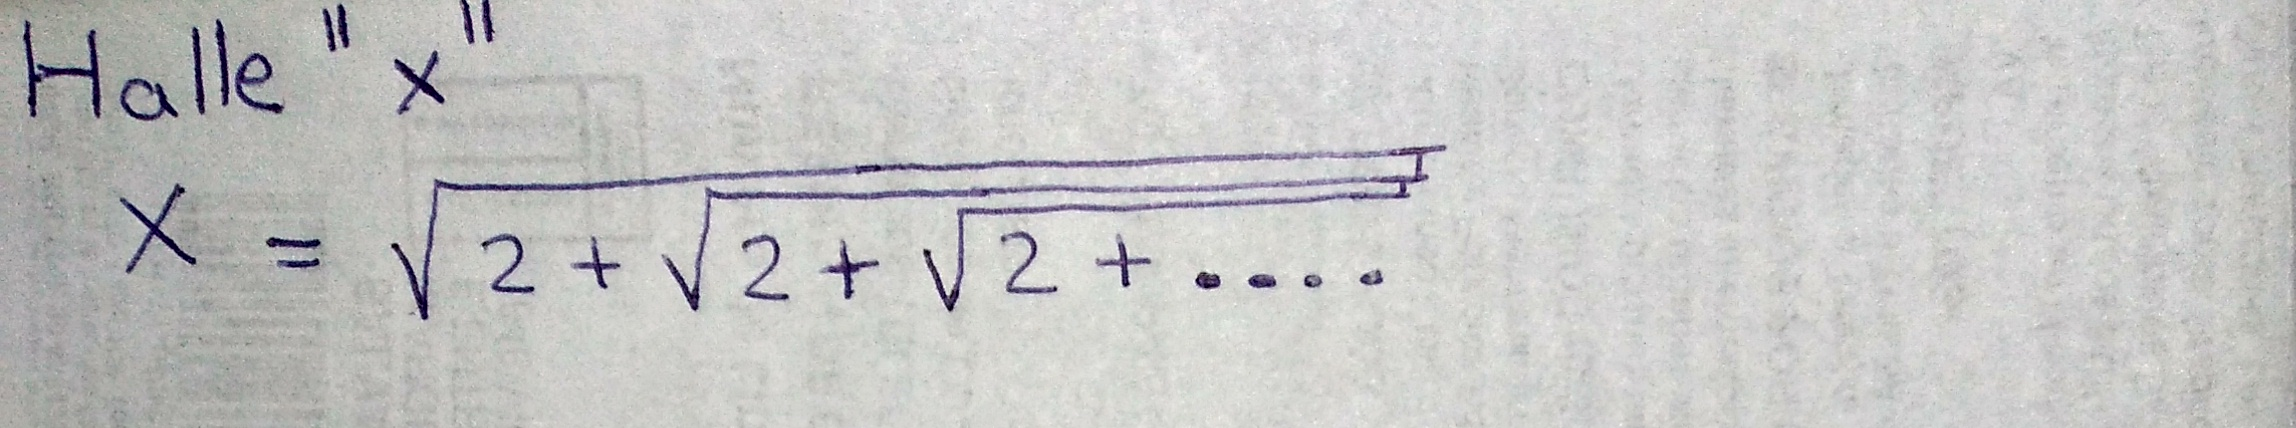 Halle "x"
X = √2 + √2 + √2 + ....